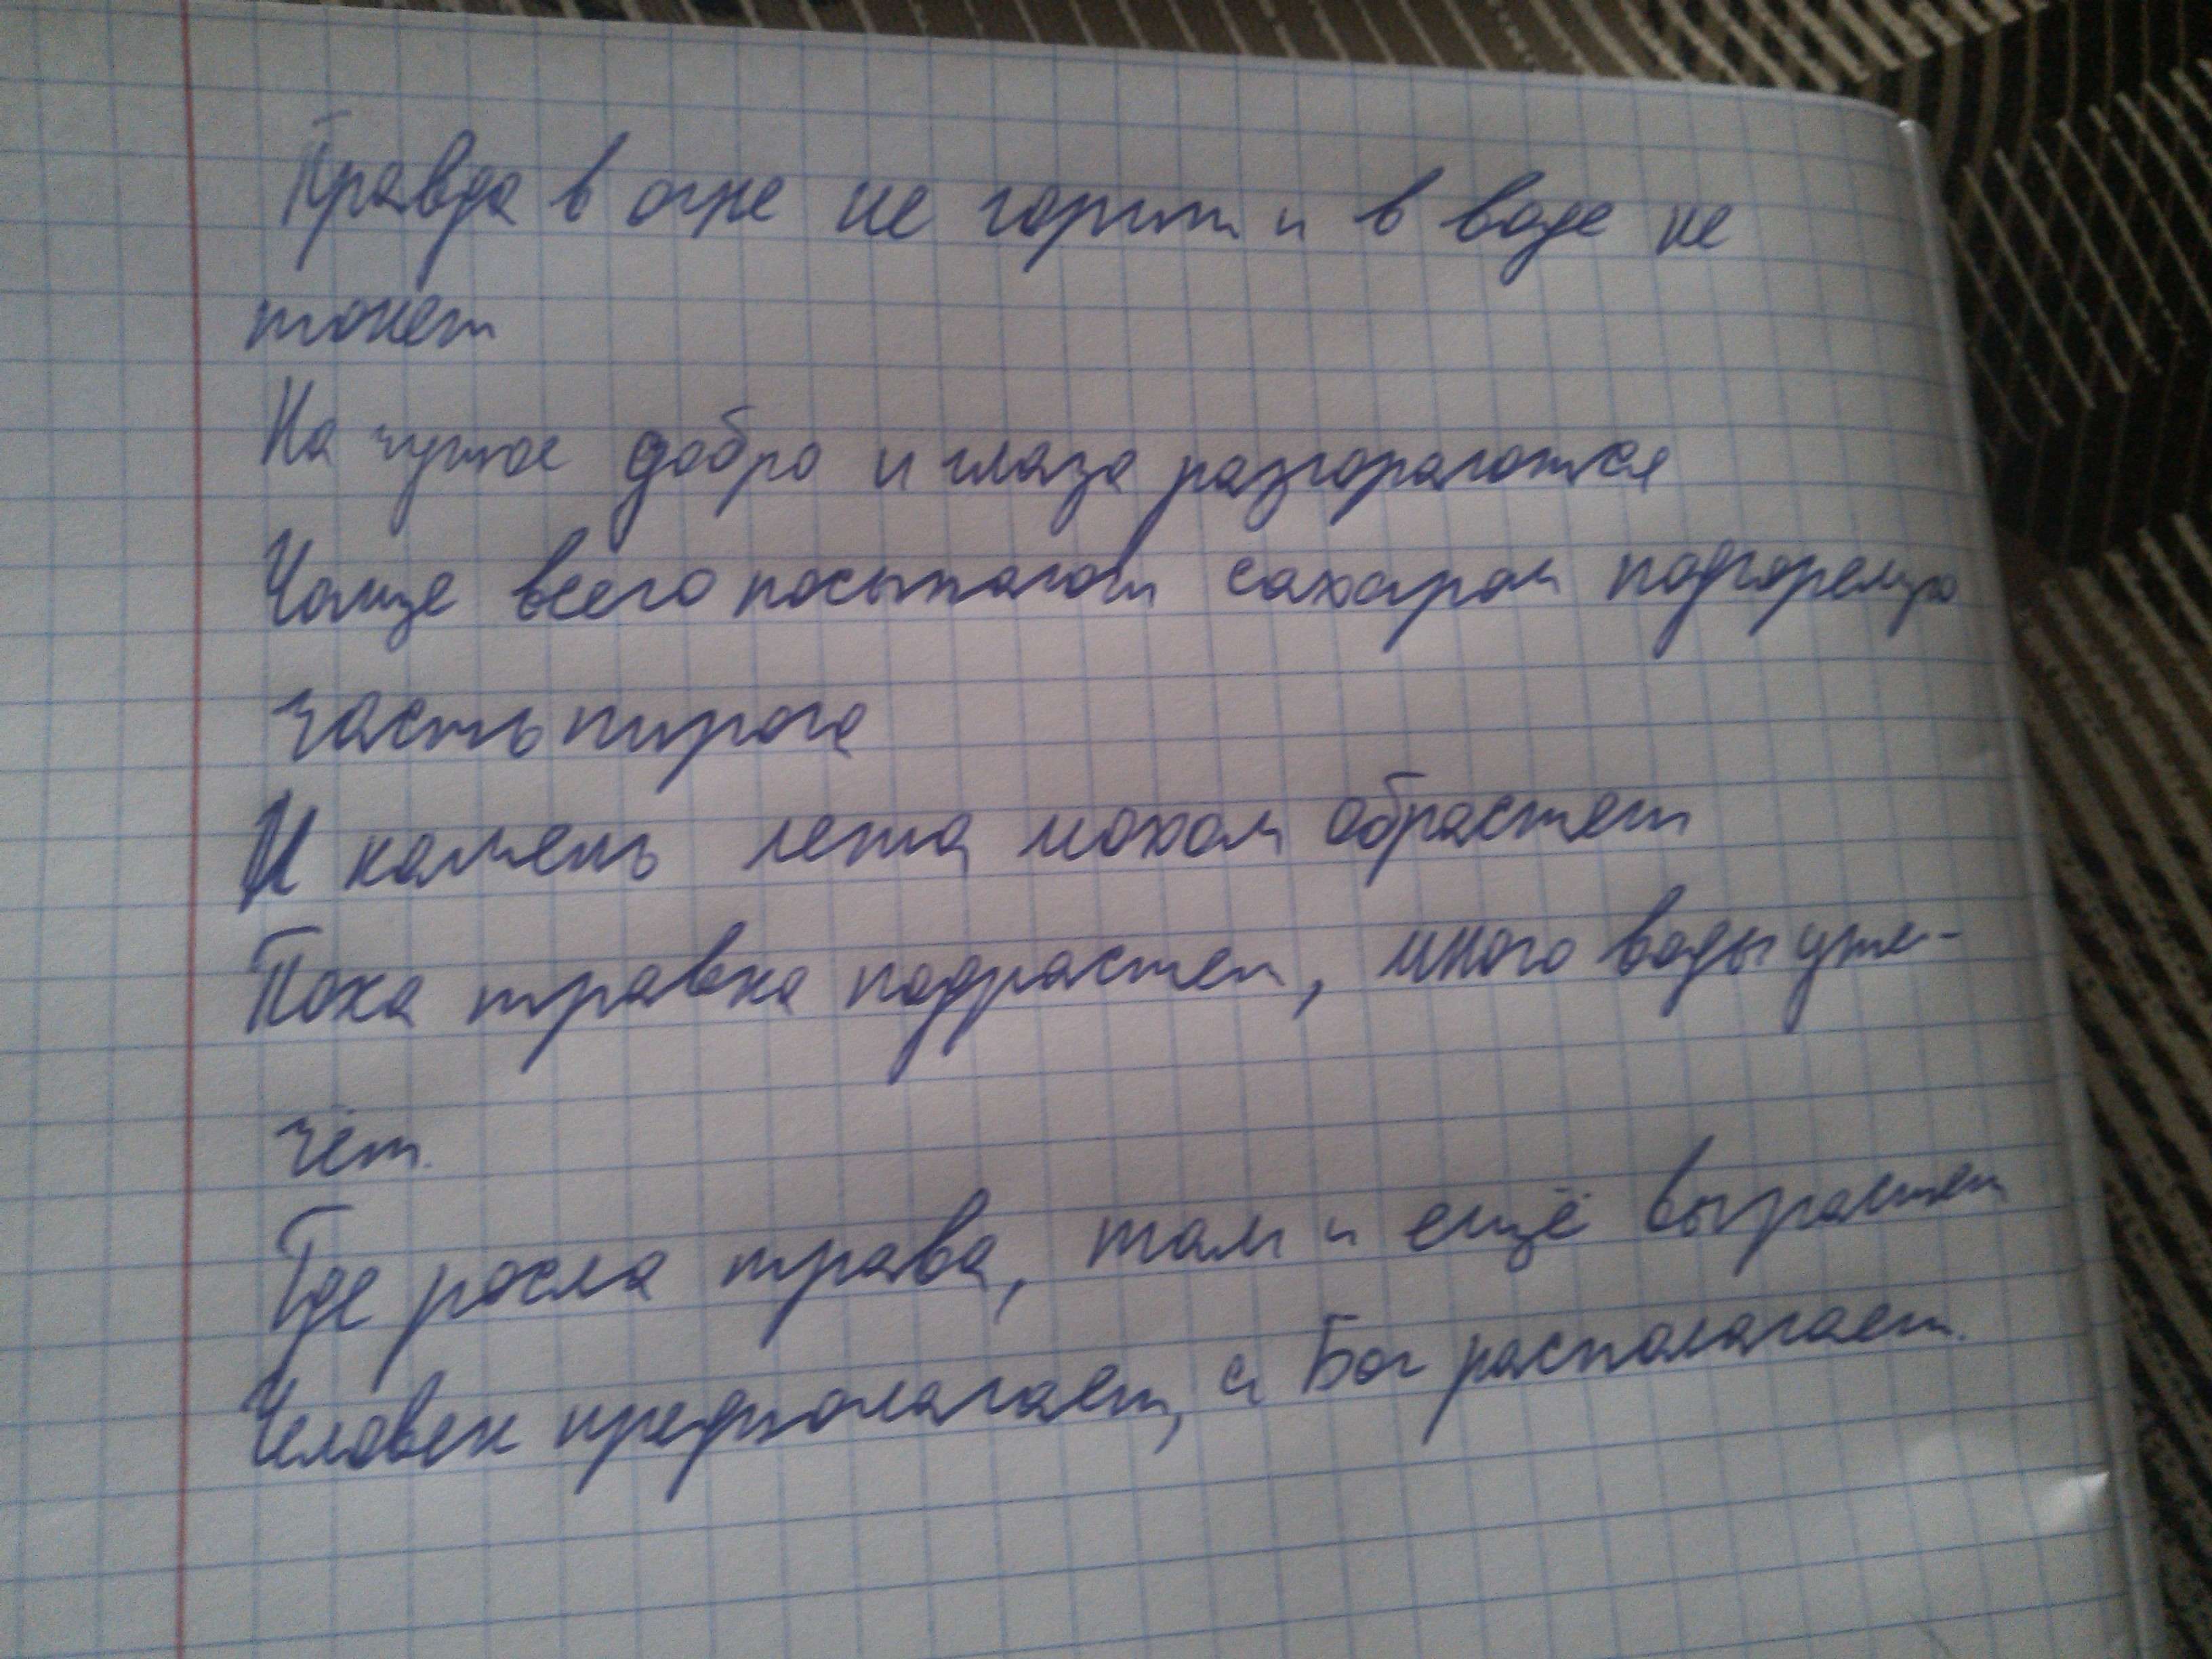 Правда в огне не горит и в воде не
тонет
На чужое добро и глаза разгораются
Чаще всего посыпают сахаром подгорелую
часть пирога
И камень лежа мохом обрастет
Пока травка подрастет, много воды уте-
чёт.
Где росла трава, там и ещё вырастет
Человек предполагает, а Бог располагает.